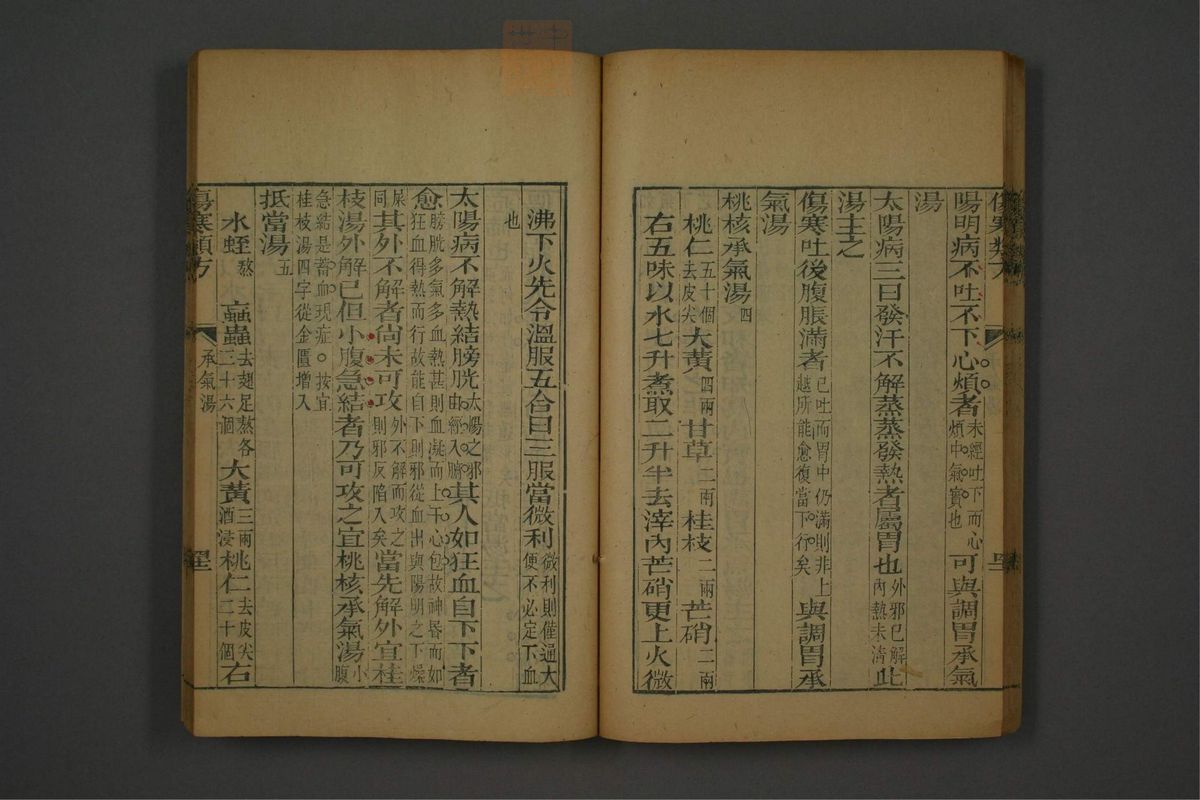 傷寒類方
陽明病不吐不下心煩者未經吐下而心煩中氣實也可與調胃承氣
湯
太陽病三日發汗不解蒸蒸發熱者屬胃也外邪已解內熱未淸此
湯主之
傷寒吐後腹脹滿者已吐而胃中仍滿則非上越所能愈復當下行矣與調胃承
氣湯
桃核承氣湯四
桃仁五十個去皮尖大黃四兩甘草二兩桂枝二兩芒硝二兩
右五味以水七升煮取二升半去滓內芒硝更上火微
沸下火先令溫服五合日三服當微利微利則僅通大便不必定下血
也
太陽病不解熱結膀胱太陽之邪由經入腑其人如狂血自下下者
愈膀胱多氣多血熱甚則血凝而上干心包故神昏而如狂血得熱而行故能自下則邪從血出與陽明之下燥
屎同其外不解者尚未可攻外不解而攻之則邪反陷入矣當先解外宜桂
枝湯外解已但小腹急結者乃可攻之宜桃核承氣湯小腹
急結是蓄血現症○按宜桂枝湯四字從金匱增入
抵當湯五
水蛭熬䖟蟲去翅足熬各三十六個大黃三兩酒浸桃仁去皮尖二十個右
傷寒類方
承氣湯